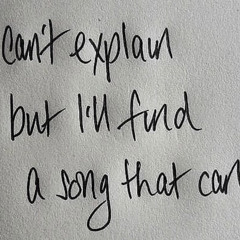 can't explain
but I'll find
a song that can